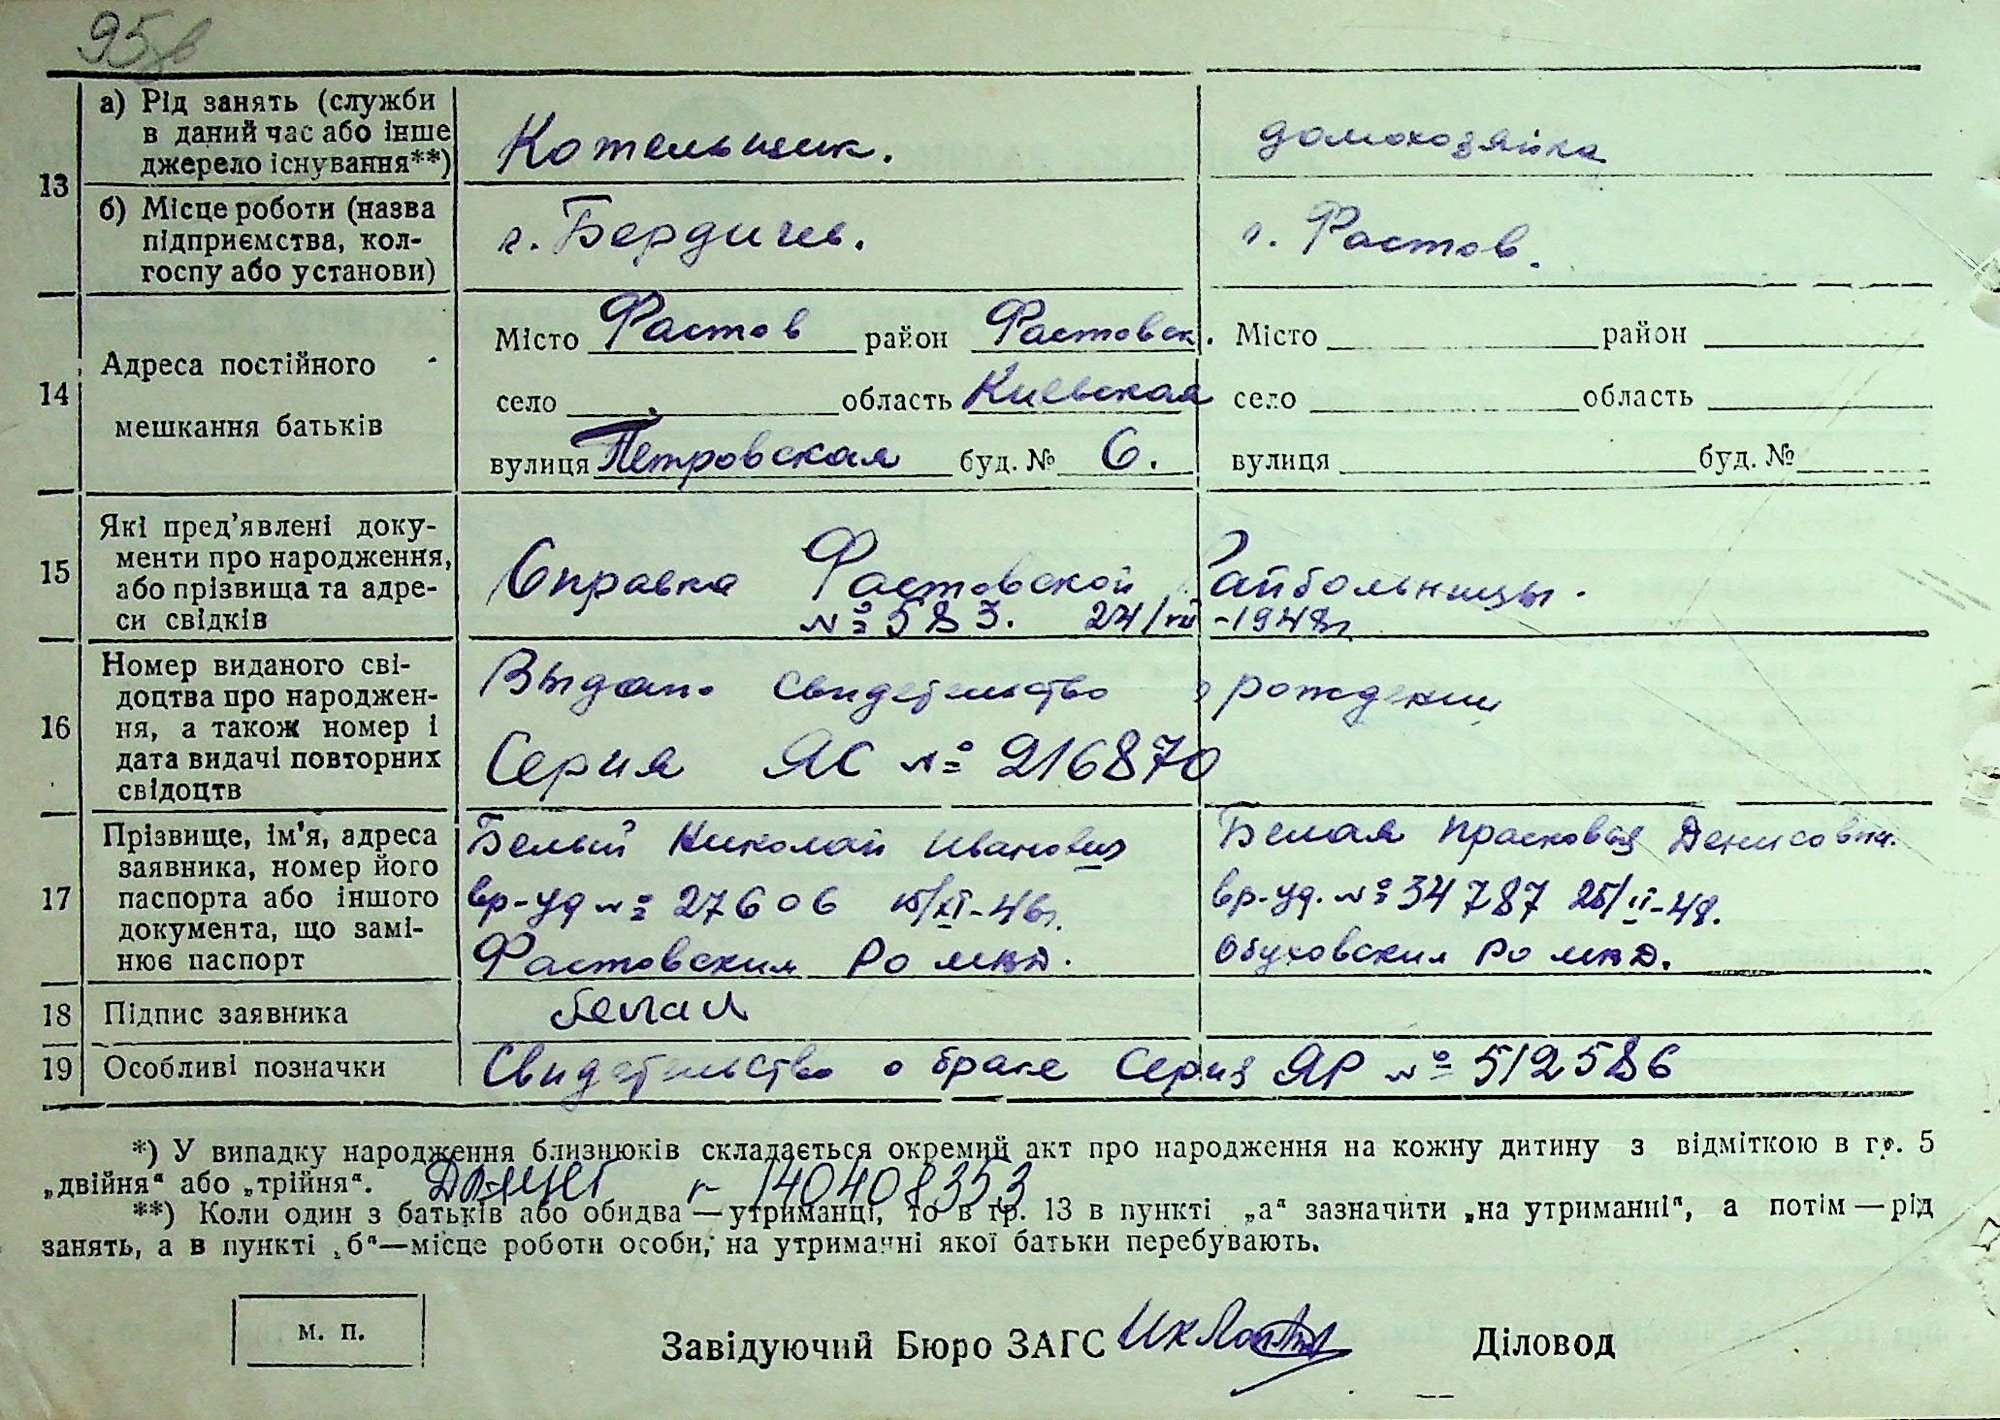 95
13 а) Рід занять (служби в даний час або інше джерело існування**) Котельщик. домохозяйка
б) Місце роботи (назва підприємства, колгоспу або установи) г. Бердичев. г. Фастов.
14 Адреса постійного мешкання батьків
Місто Фастов район Фастовск. Місто район
село область Киевская село область
вулиця Петровская буд. № 6. вулиця буд. №
15 Які пред’явлені документи про народження, або прізвища та адреси свідків
Справка Фастовской Райбольницы.
№ 583. 24/VII -1948г
16 Номер виданого свідоцтва про народження, а також номер і дата видачі повторних свідоцтв
Выдано свидетельство о рождении
Серия ЯС № 216870
17 Прізвище, ім’я, адреса заявника, номер його паспорта або іншого документа, що замінює паспорт
Белый Николай Иванович Белая Прасковья Денисовн.
вр-уд № 27606 15/XI-46г. вр-уд. № 34787 25/II-48.
Фастовским РО МВД. Обуховским РО МВД.
18 Підпис заявника Белая
19 Особливі позначки Свидетельство о браке Серия ЯР № 512586
*) У випадку народження близнюків складається окремий акт про народження на кожну дитину з відміткою в гр. 5
„двійня“ або „трійня“. 140408353
**) Коли один з батьків або обидва — утриманці, то в гр. 13 в пункті „а“ зазначити „на утриманні“, а потім — рід
занять, а в пункті „б“—місце роботи особи, на утриманні якої батьки перебувають.
м. п.
Завідуючий Бюро ЗАГС Діловод